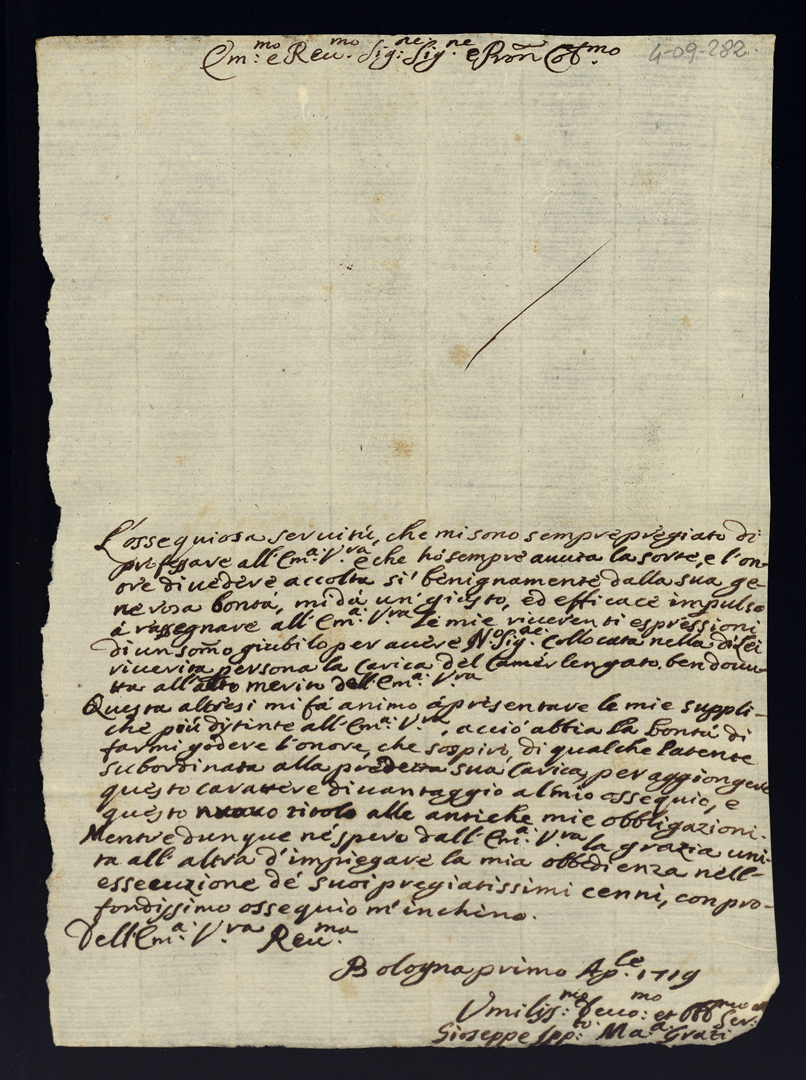 Em.mo e Reu.mo Sig.re Sig.re e Pron Col.mo
4-09-282
L'ossequiosa seruitù, che mi sono sempre pregiato di
professare all'Em.a V.ra e che hò sempre auuta la sorte, e l'on-
ore di uedere accolta sì benignamente dalla sua ge-
nerosa bontà, mi dà un giusto, ed efficace impulso
à rassegnare all'Em.a V.ra le mie riuerenti espressioni
di un somo giubilo per auere N.o Sig.re collocata nella di lei
riuerita persona la carica del Camerlengato, ben douu-
ta all'alto merito dell'Em.a V.ra
Questa altresì mi fà animo à presentare le mie suppli-
che più distinte all'Em.a V.ra, acciò abbia la bontà di
farmi godere l'onore, che sospiro, di qualche Patente
subordinata alla predetta sua Carica, per aggiongere
questo carattere di uantaggio al mio ossequio, e
questo nuouo titolo alle antiche mie obbligazioni.
Mentre dunque nè spero dall'Em.a V.ra la grazia uni-
ta all'altra d'impiegare la mia obbedienza nell'-
essecuzione de' suoi pregiatissimi cenni, con pro-
fondissimo ossequio m'inchino.
Dell'Em.a V.ra Reu.ma
Bologna primo Ap.le 1719
Vmilis.mo Deuo.mo et Obb.mo Ser:
Gioseppe Ma.a Grati